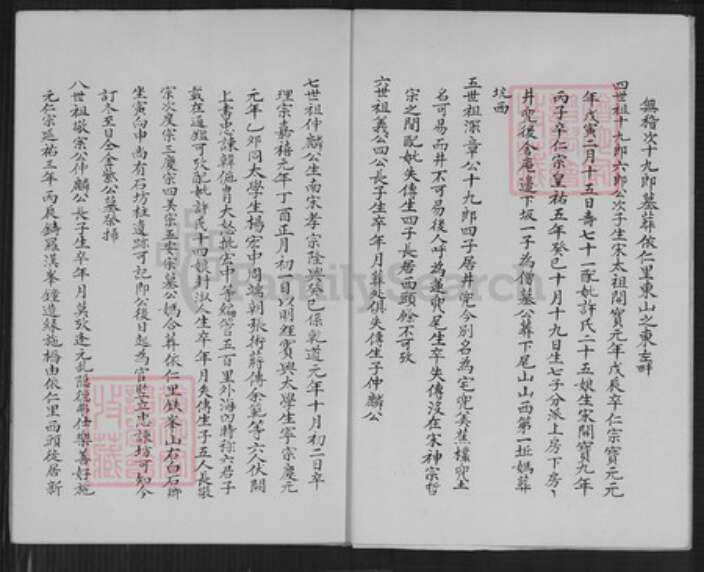 無稽次十九郎墓葬依仁里東山之東左畔
四世祖十九郎六郎公次子生宋太祖開寶元年戊辰卒仁宗寶元元
年戊寅二月十五日壽七十一配妣許氏二十五娘生宋開寶九年
丙子卒仁宗皇祐五年癸巳十月十九日生七子分派上房下房
井兜後今庵邊下坂一子為僧墓公葬下尾山山西第一坵媽葬
坑西
五世祖深章公十九郎四子居井兜今別名為宅兜美蕉樓兜生
名可易而井不可易後人呼為蓮兜尾生卒失傳沒在宋神宗哲
宗之間配妣失傳生四子長居西頭餘不可攷
六世祖義公四公長子生卒年月葬處俱失傳生子仲麟公
七世祖仲麟公生南宋孝宗隆興癸巳係乾道元年十月初二日卒
理宗嘉禧元年丁酉正月初一日以明經賓興太學生寧宗慶元
元年乙卯同太學生楊宏中周端朝張衜蔣傅余範等六人伏闕
上書忠諫韓侂胄大怒批宏中等編管五百里外海內時稱六君子
載在通鑑可攷配妣許氏十四娘封淑人生卒年月失傳生子五人長敬
宗次度宗三慶宗四美宗五宏宗墓公媽合葬依仁里鉄峯山右白石鄉
坐寅向申尚有石坊柱遺跡可記即公後日起為官監立忠諫坊可知今
訂冬至日全金紫公墓祭掃
八世祖敬宗公仲麟公長子生卒年月莫攷逢元亂隱德弗仕樂善好施
元仁宗延祐三年丙辰鑄羅漢峯鐘造緣施橋由依仁里西頭徙居新
FamilySearch